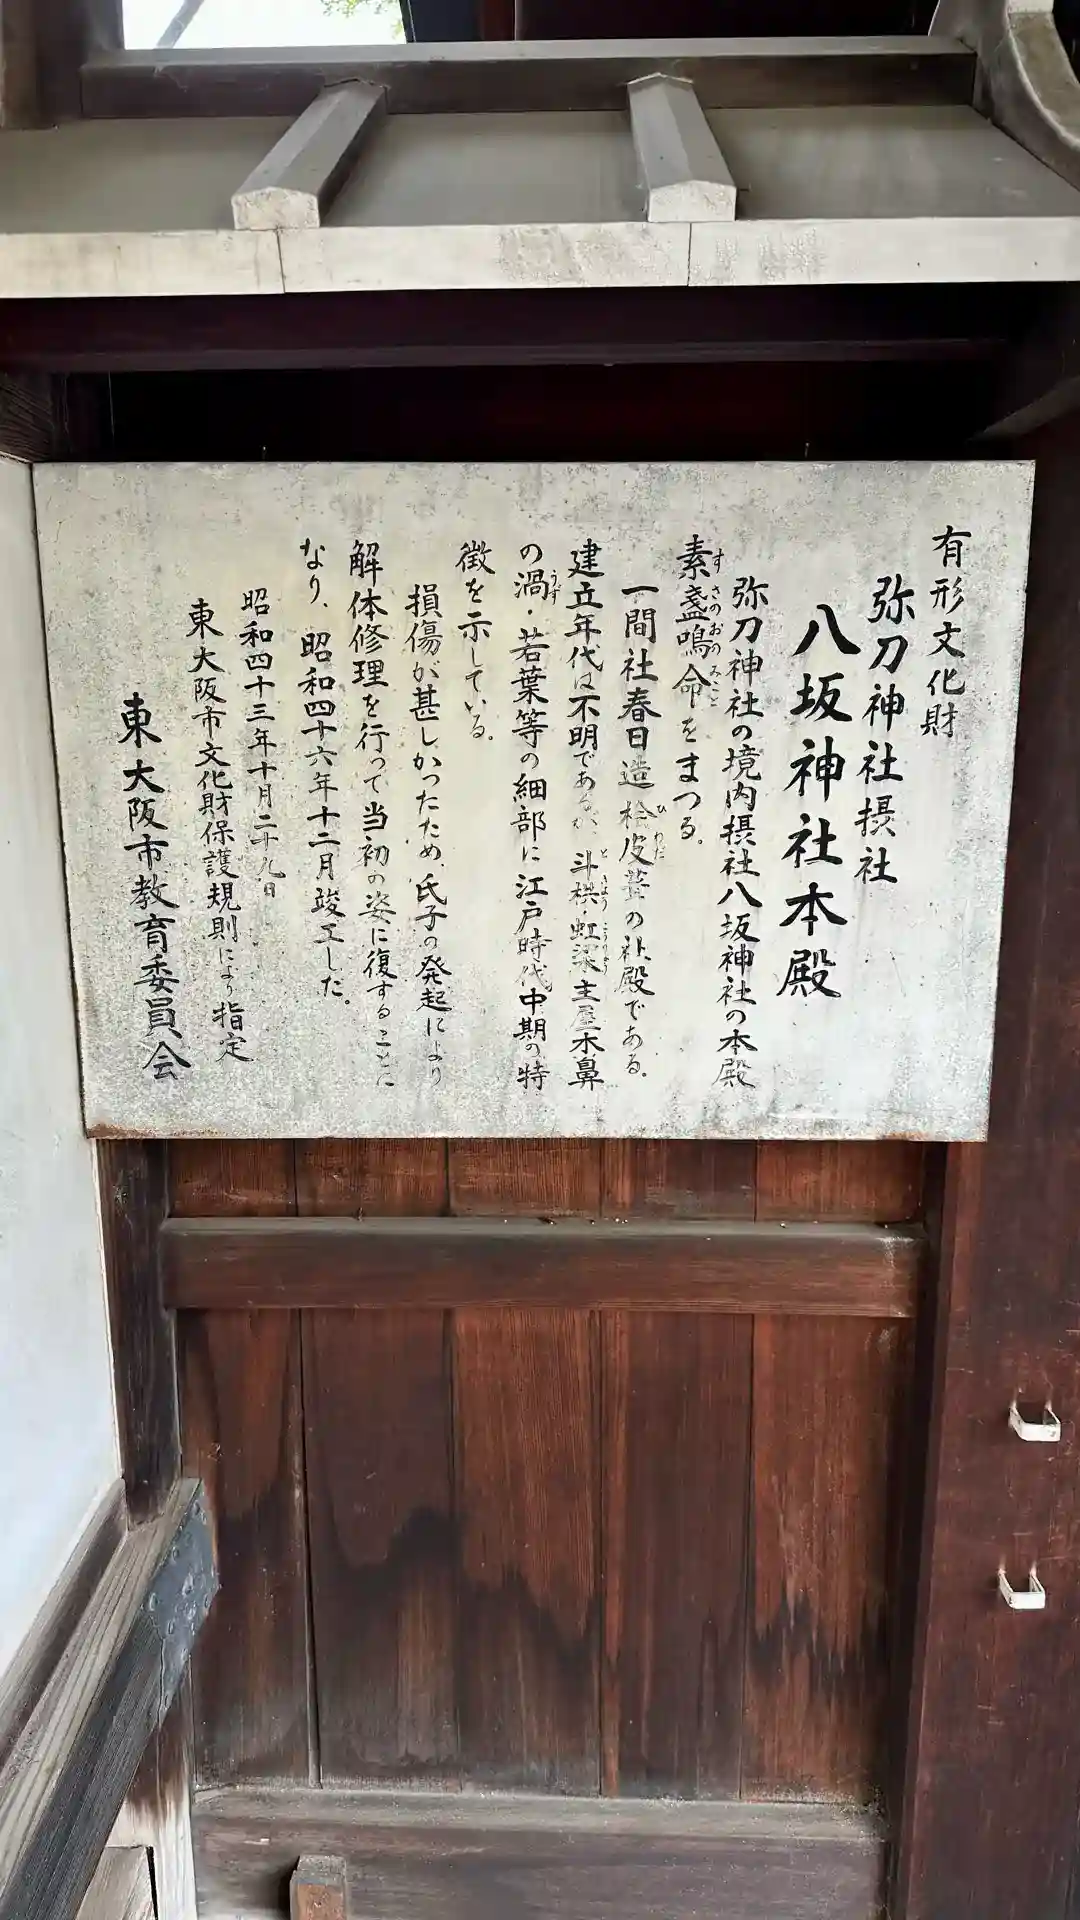 有形文化財
弥刀神社摂社
八坂神社本殿
弥刀神社の境内摂社八坂神社の本殿
素盞嗚命をまつる。
すさのおのみこと
一間社春日造桧皮葺の社殿である。
ひわだ
建立年代は不明であるが、斗栱・虹梁・主屋木鼻
ときょう こうりょう
の渦・若葉等の細部に江戸時代中期の特
うず
徴を示している。
損傷が甚しかったため、氏子の発起により
解体修理を行って当初の姿に復することに
なり、昭和四十六年十二月竣工した。
昭和四十三年十月二十九日
東大阪市文化財保護規則により指定
東大阪市教育委員会